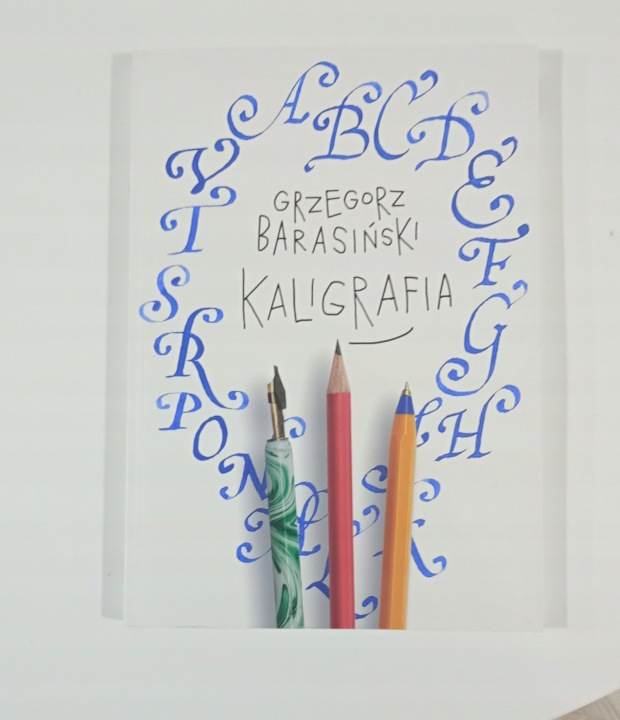 A B C D E F G H
GRZEGORZ
BARASIŃSKI
KALIGRAFIA
V T S R P O N